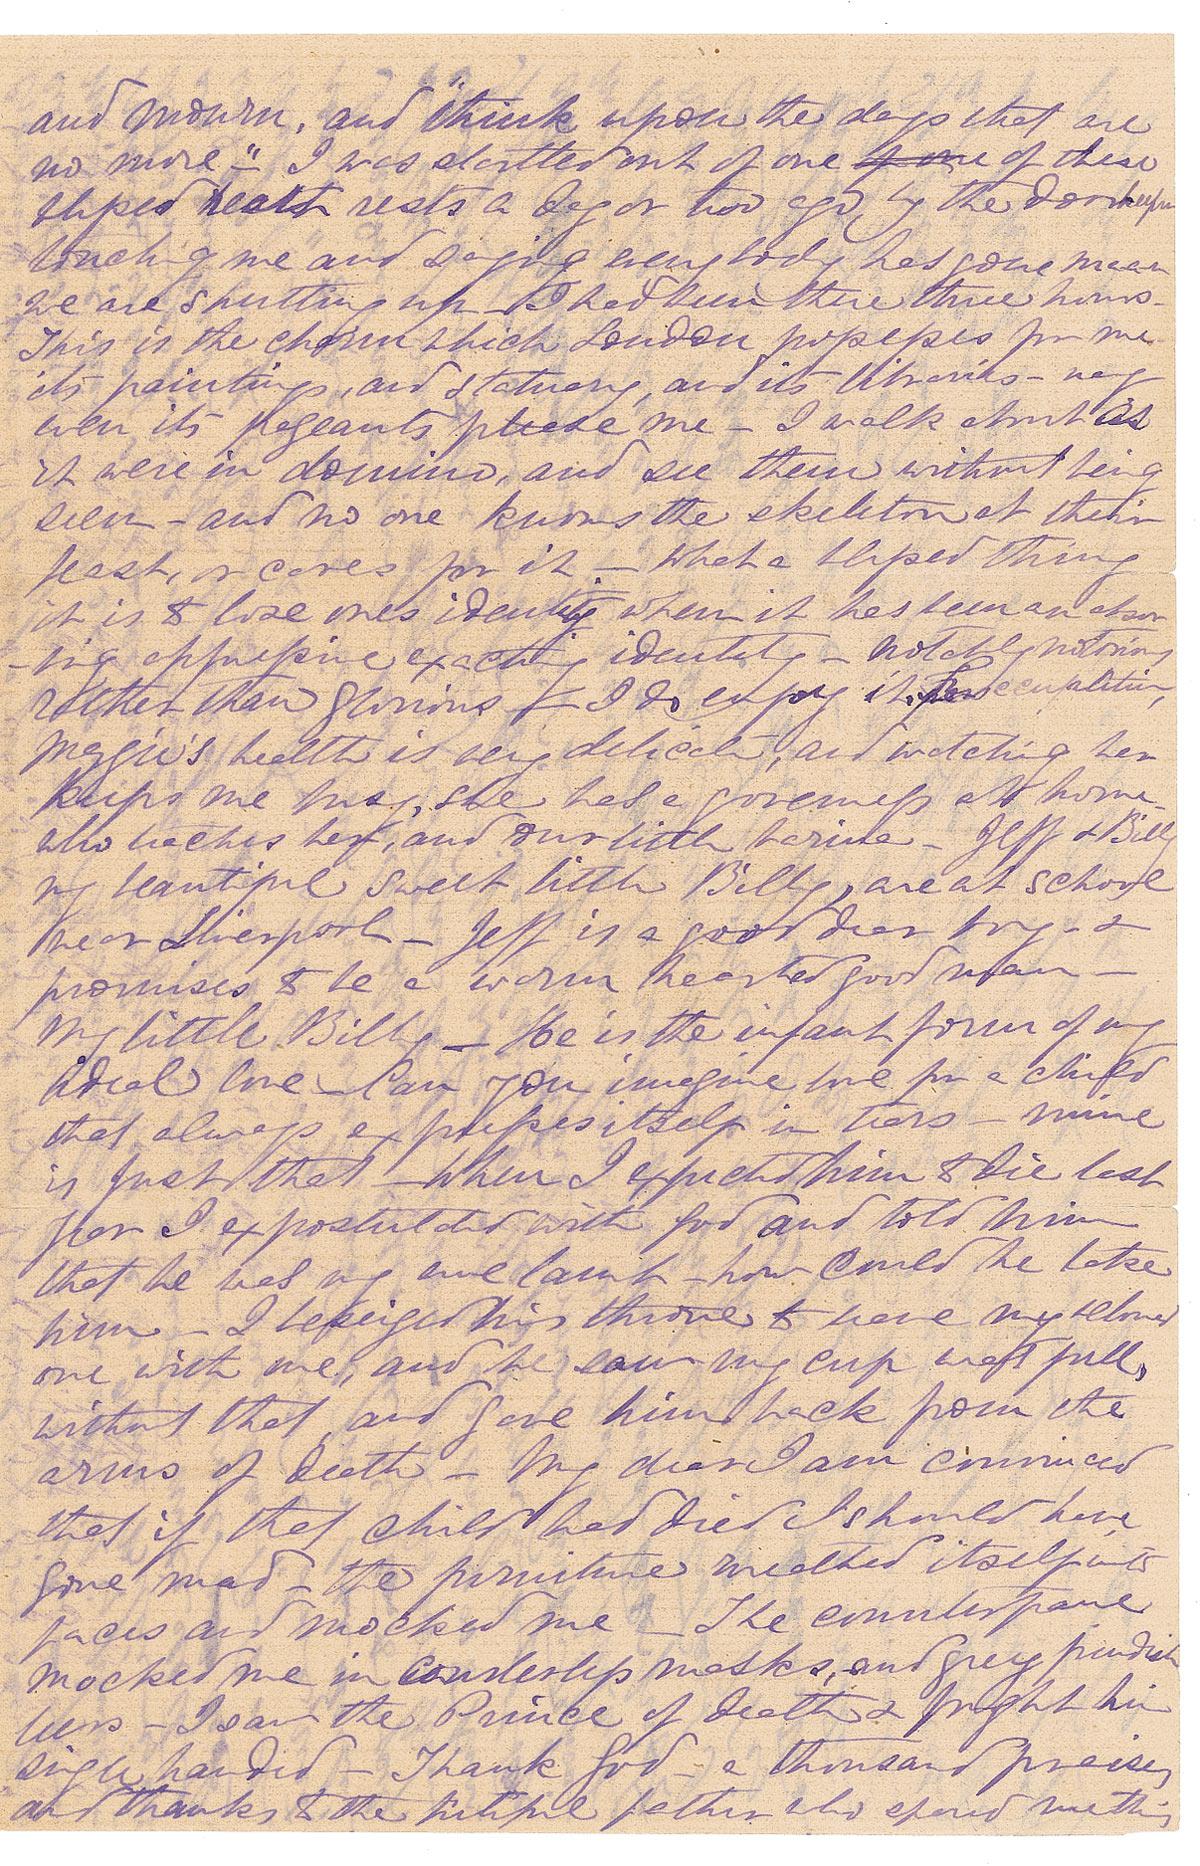 and mourn, and "think upon the days that are
no more" - I was startled out of one of one of these
blessed rests a day or two ago, by the Doorkeeper
touching me and saying everybody has gone mam
we are shutting up - I had been there three hours -
This is the charm which London possesses for me
its paintings, and statuary, and its libraries - nay
even its pageants please me - I walk about as
it were in domino, and see them without being
seen - and no one knows the skeleton at their
feast, or cares for it - what a blessed thing
it is to lose ones identity when it has been an absor
-ing oppressive exacting identity - notably notorious
rather than glorious - I do enjoy it
Maggie's health is very delicate, and watching her
keeps me busy, she has a governess at home -
who teaches her, and our little - Jeff & Billy
my beautiful sweet little Billy, are at school
near Liverpool - Jeff is a good dear boy - &
promises to be a warm hearted good man -
My little Billy - He is the infant form of my
ideal love - Can you imagine love for a child
that always expresses itself in tears - mine
is just that - when I expected him to die last
year I expostulated with God and told him
that he was my ewe lamb - how could he take
him - I beseiged his throne to leave my beloved
one with me, and he saw my cup was full,
without that, and gave him back from the
arms of Death - My dear I am convinced
that if that child had died I should have
gone mad - the furniture wreathed itself into
faces and mocked me - The counterpane
mocked me in countless masks, and grey fiendish
leers - I saw the Prince of Death & fought him
single handed - Thank God - a thousand praises
and thanks to the pitiful father who spared me this